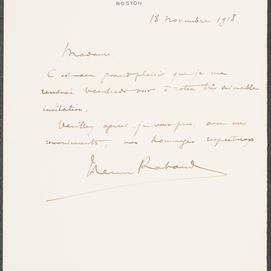 BOSTON
18 Novembre 1918
Madame
C'est avec grand plaisir que je me
rendrai vendredi soir à votre très aimable
invitation.
Veuillez agréer, je vous prie, avec mes
remerciements, mes hommages respectueux
Henri Rabaud